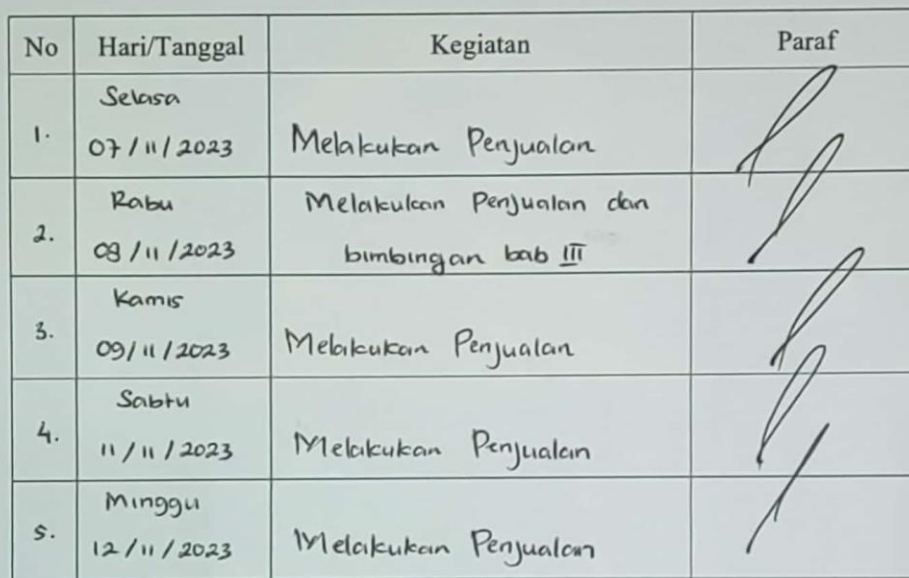 No Hari/Tanggal Kegiatan Paraf
Selasa
1. 07/11/2023 Melakukan Penjualan
Rabu Melakukan Penjualan dan
2. 08/11/2023 bimbingan bab III
Kamis
3. 09/11/2023 Melakukan Penjualan
Sabtu
4. 11/11/2023 Melakukan Penjualan
Minggu
5. 12/11/2023 Melakukan Penjualan